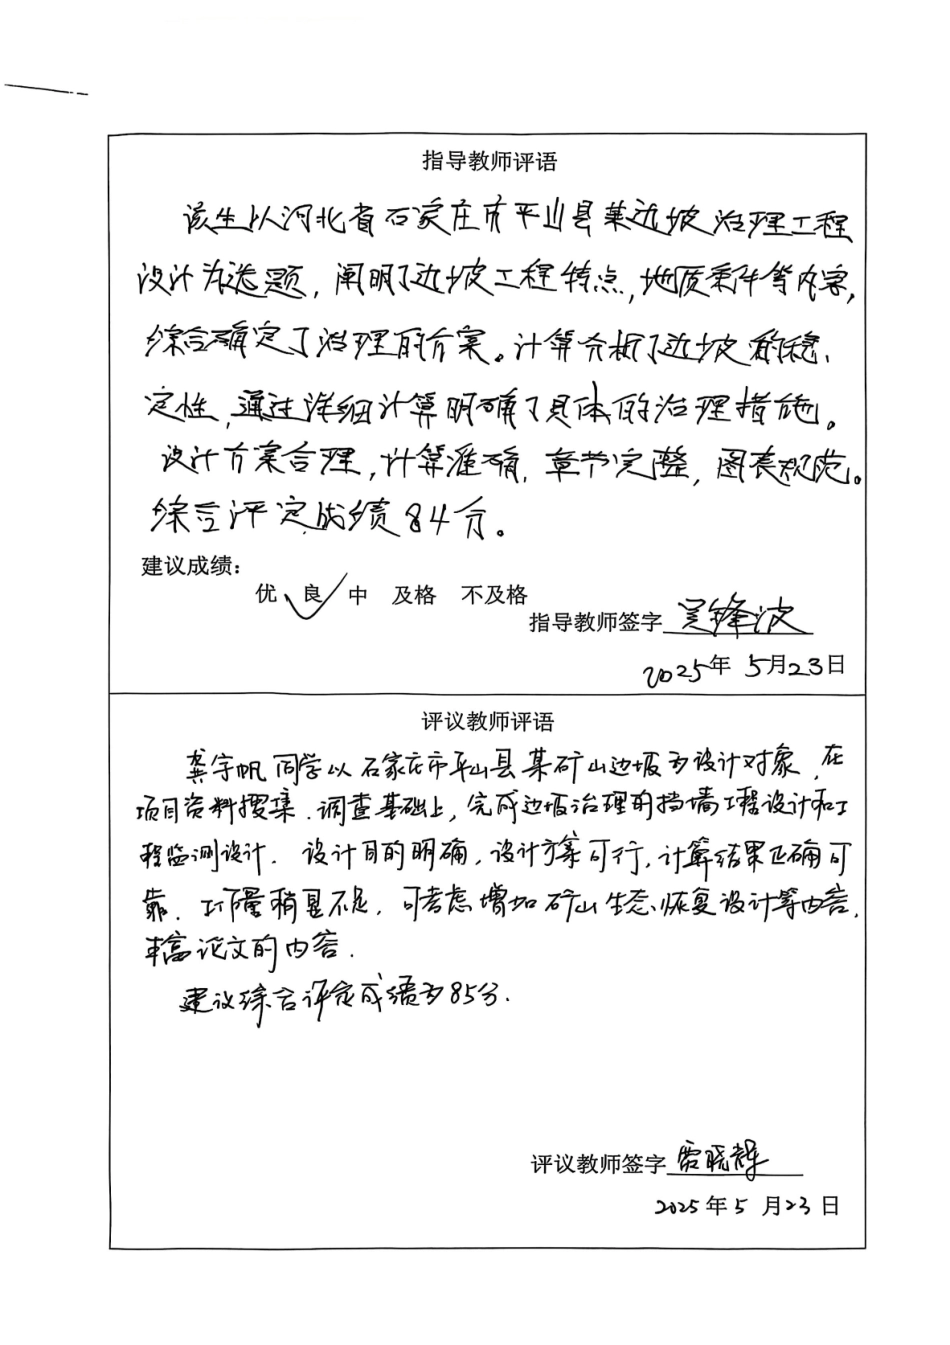 指导教师评语
该生以河北省石家庄市平山县某边坡治理工程
设计为选题，阐明了边坡工程特点，地质条件等内容，
综合确定了治理的方案。计算分析了边坡的稳
定性，通过详细计算明确了具体的治理措施。
设计方案合理，计算准确，章节完整，图表规范。
综合评定成绩84分。
建议成绩：
优 良 中 及格 不及格
指导教师签字 吴锋波
2025年 5月23日
评议教师评语
龚宇帆同学以石家庄市平山县某矿山边坡为设计对象，在
项目资料搜集、调查基础上，完成边坡治理的挡墙工程设计和工
程监测设计。设计目的明确，设计方案可行，计算结果正确可
靠。工作量稍显不足，可考虑增加矿山生态恢复设计等内容，
丰富论文的内容.
建议综合评定成绩为85分.
评议教师签字 晓辉
2025年5月23日